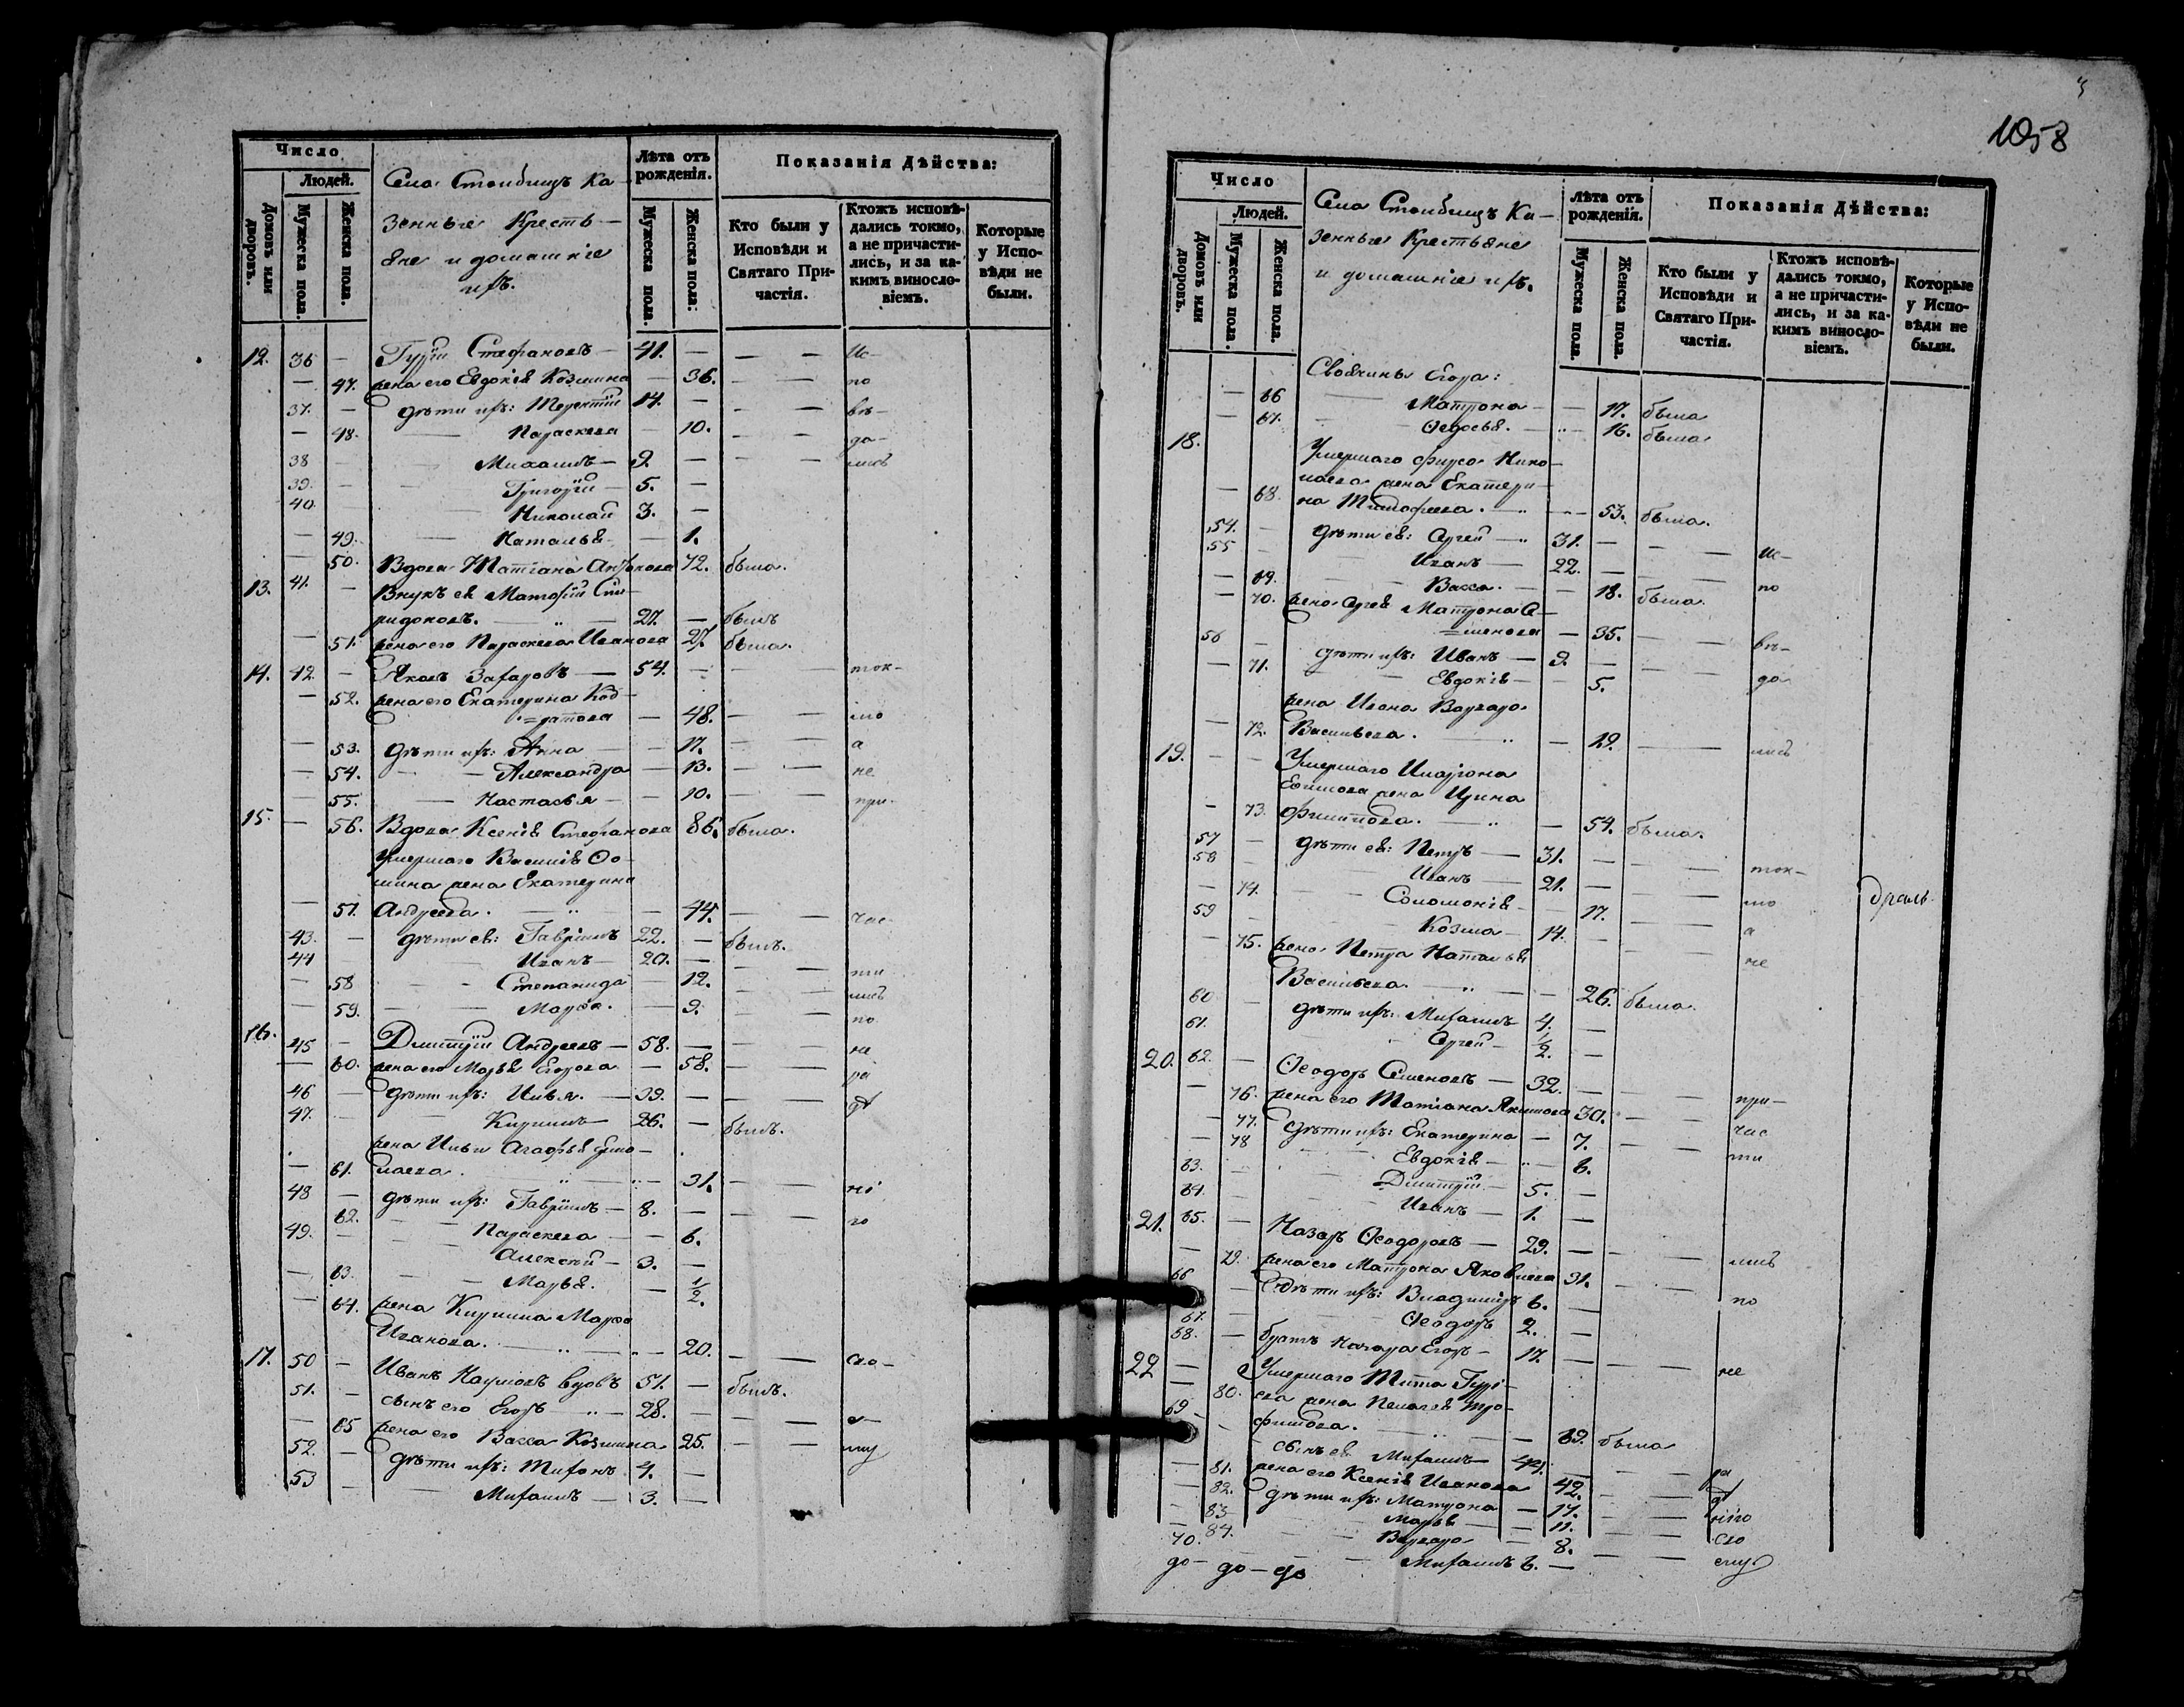 Число
Людей.
Домовъ или дворовъ.
Мужеска пола.
Женска пола.
Села Столбищъ Ка-
зенные Кресть-
яне и домашніе
ихъ.
Лѣта отъ рожденія.
Мужеска пола.
Женска пола:
Показанія Дѣйства:
Кто были у Исповѣди и Святаго Причастія.
Ктожъ исповѣдались токмо, а не причастились, и за какимъ винословіемъ.
Которые у Исповѣди не были.
12. 36 — Гурій Стефановъ — 41. — — — Ис-
— 47. жена его Евдокія Козмина — 36. — — по
37. — дѣти ихъ: Терентій 14. — — — вѣ-
— 48. — Параскева — 10. — — да-
38 — Михаилъ — 9. — — — лись
39. — Григорій — 5. —
40. — Николай 3. —
— 49. Наталья — 1.
— 50. Вдова Татіана Антонова 72. была.
13. 41. — Внукъ ея Матѳій Спи-
ридоновъ. — 27. — былъ
— 51. жена его Параскева Иванова 27. была.
14. 42 — Яковъ Захаровъ — 54. — — — ток-
— 52. жена его Екатерина Код-
=ратова — 48. — — мо
— 53. дѣти ихъ: Анна — 17. — — а
— 54. — Александра — 13. — — не
— 55. — Настасья — 10. — — при-
15. — 56. Вдова Ксенія Стефанова 86. была.
Умершаго Василія Ѳо-
мина жена Екатерина
— 57. Андреева. — 44. — — час-
43. — дѣти ея: Гавріилъ 22. — былъ.
44 — Иванъ — 20. — — — ти
— 58 — Степанида — 12. — — лись
— 59. — Марѳа. — 9. — — по
16. 45 — Димитрій Андреевъ — 58. — — — не
— 60. жена его Марья Егорова — 58. — — ра
46 — дѣти ихъ: Илья. — 39. — — — дѣ
47. — Кирилъ — 26. — былъ.
жена Ильи Агафья Ермо-
— 61. лаева. — 31. — — ні
48 — дѣти ихъ: Гавріилъ — 8. — — — го
62. — Параскева — 6.
49. — Алексѣй — 3. —
— 63. — Марья. — 1/2.
— 64. жена Кирила Марѳа
Иванова. — 20. — — сло-
17. 50 — Иванъ Наумовъ вдовъ 51. — былъ.
51. — сынъ его Егоръ — 28. — — — е-
— 65 жена его Васса Козмина 25. — — му
52. — дѣти ихъ: Тихонъ 4. —
53 — Михаилъ — 3. —
1058
Число
Людей.
Домовъ или дворовъ.
Мужеска пола.
Женска пола.
Села Столбищъ Ка-
зенные Крестьяне
и домашніе ихъ.
Лѣта отъ рожденія.
Мужеска пола.
Женска пола.
Показанія Дѣйства:
Кто были у Исповѣди и Святаго Причастія.
Ктожъ исповѣдались токмо, а не причастились, и за какимъ винословіемъ.
Которые у Исповѣди не были.
Своячины Егора:
— 66 — Матрона — 17. была
— 67. — Ѳедосья. — 16. была
18. Умершаго Фирса Нико-
лаева жена Екатери-
— 68. на Тимофеева. — 53. была.
54. — дѣти ея: Сергей — 31. — — — Ис-
55 — Иванъ — 22. — — — по
— 69. — Васса. — 18. была.
— 70. жена Сергея Матрона Се-
=менова — 35. — — вѣ-
56 — дѣти ихъ: Иванъ — 9. — — — да
— 71. — Евдокія — 5.
жена Ивана Варвара
— 72. Васильева. — 19. — — лись
19. — — Умершаго Иларіона
Ефимова жена Ирина
— 73. Филиппова. — 54. была.
57 — дѣти ея: Петръ — 31. — — — ток-
58 — Иванъ — 21. — — — мо
— 74. — Соломонія — 17. — — а
59 — Козма — 14. — — — не
— 75. жена Петра Наталья
Васильева. — 26. была.
60 — дѣти ихъ: Михаилъ 4. —
61. — Сергей — 1/2. —
20. 62. — Ѳеодоръ Семеновъ — 32. — — — при-
— 76. жена его Татіана Якимова 30. — — час
— 77. дѣти ихъ: Екатерина — 7. — — ти
— 78 — Евдокія — 6.
63. — Димитрій — 5. —
64. — Иванъ — 1. —
21. 65. — Назаръ Ѳеодоровъ — 29. — — — лись
— 79. жена его Матрона Яковлева 31. — — по
66 — дѣти ихъ: Владиміръ 6. —
67. — Ѳеодоръ 2. —
68. — братъ Назара Егоръ — 17. — — — не
22 — Умершаго Тита Гурі-
— 80. ева жена Пелагея Тро-
фимова. — 69. была
69 — сынъ ея Михаилъ — 44. — — — ра
— 81. жена его Ксенія Иванова 42. — — дѣ
— 82. дѣти ихъ: Матрона — 17. — — ніго
— 83 — Марья — 11. — — сло
— 84. — Варвара — 8. — — ему
70. — Михаилъ 6. —
до — до — до